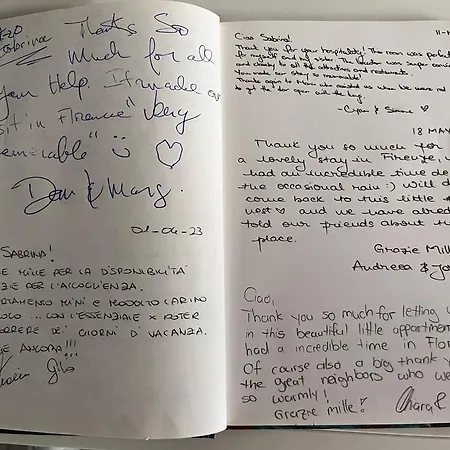 Sabrina
Thanks So
Much for all
your Help. It made our
visit in Florence "very
memerable" :)
Dan & Marg.
01-04-23
SABRINA!
MILLE PER LA DISPONIBILITÀ
PER L'ACCOGLIENZA.
MINI E MODOLTO CARINO
... CON L'ESSENZIALE X POTER
DEI GIORNI DI VACANZA.
ANCORA!!!
Ciao Sabrina!
Thank you for your hospitality! The room was perfect
for myself and my sister. The location was super
and closely to all the attractions and restaurants.
You made our stay so memorable!
to Mom who assisted us when we were not
to get the door open with the key.
18 MAY
Thank you so much for
a lovely stay in Firenze, w
had an incredible time de
the occasional rain :) Will d
come back to this little
nest ♡ and we have alred
told our friends about th
place.
Grazie Mille
Andreea & Jo
Ciao,
Thank you so much for letting u
in this beautiful little appartmen
had a incredible time in Flor
Of course also a big thank y
the great neighbors who we
so warmly!
Grazie mille!
Chiara &